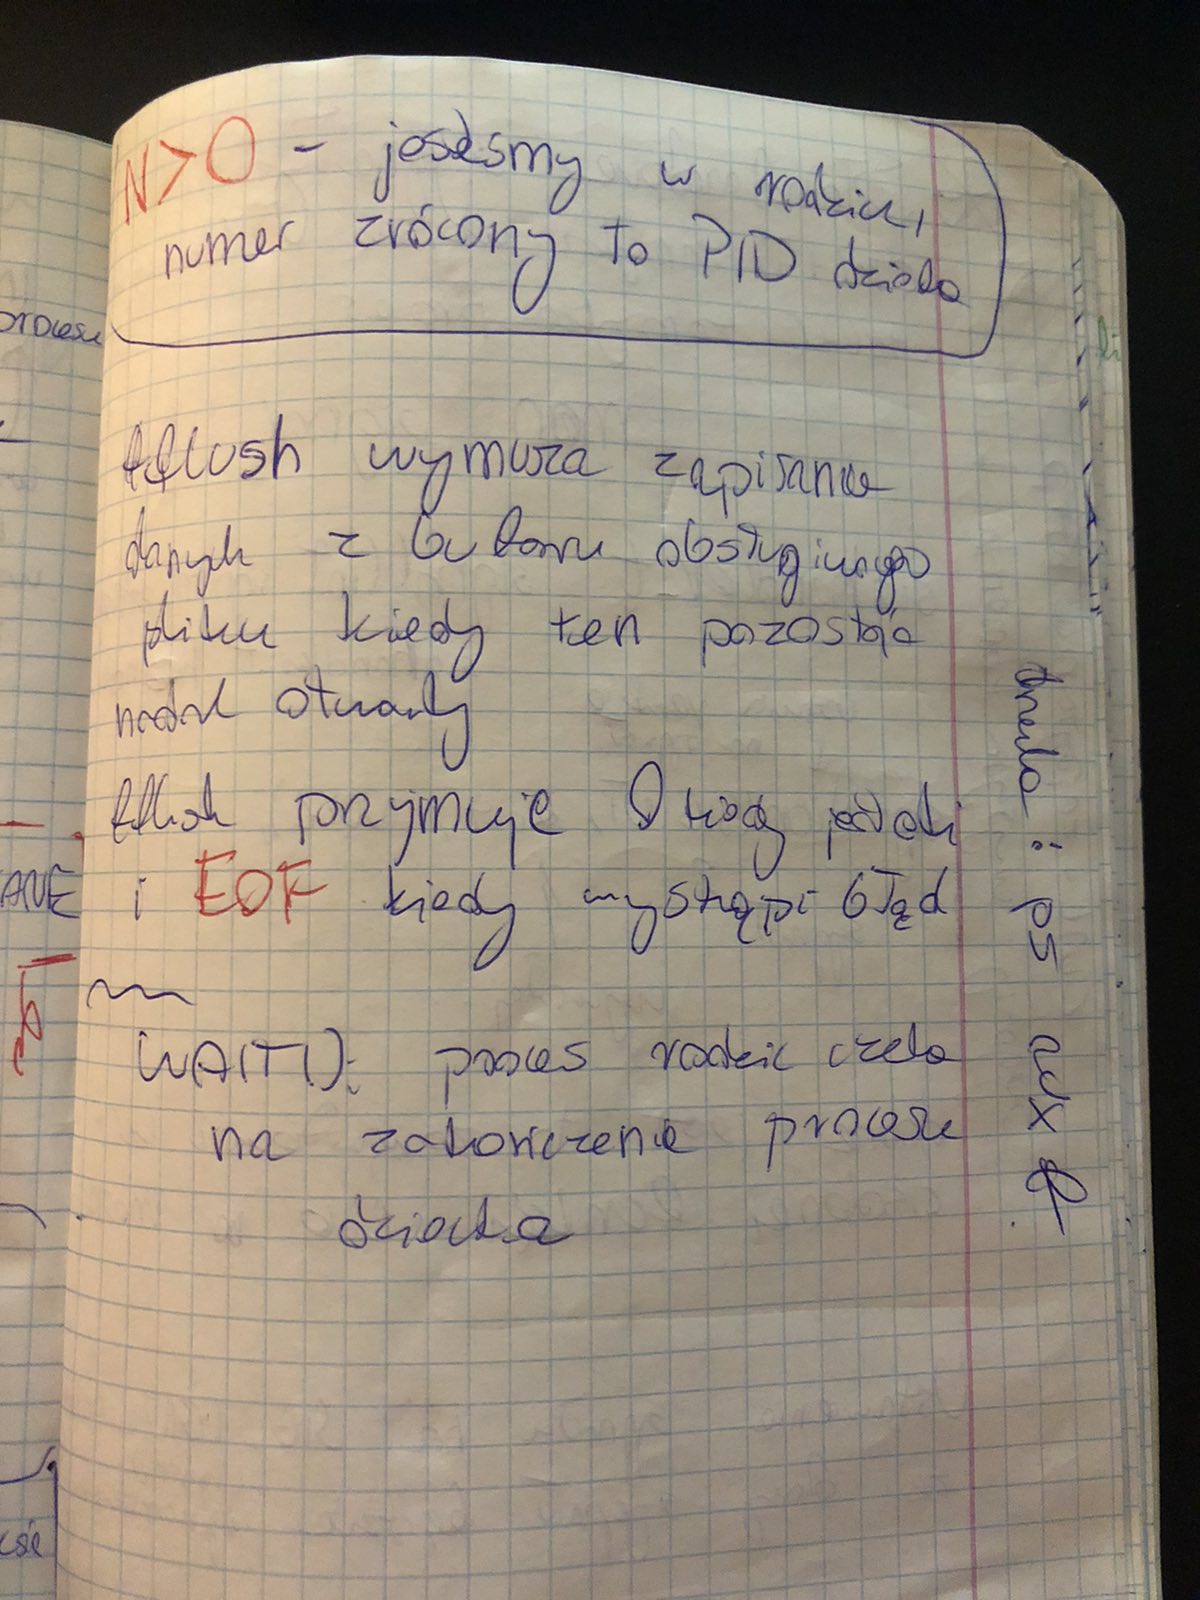 N>0 - jesteśmy w rodzicu,
numer zrócony to PID dziecka
fflush wymusza zapisanie
danych z bufora obsługiwanego
pliku kiedy ten pozostaje
nadal otwarty
fflush przyjmuje 0 kiedy
i EOF kiedy wystąpi błąd
WAIT(): proces rodzic czeka
na zakończenie procesu
dziecka
drzewka : ps aux
procesu
ANE